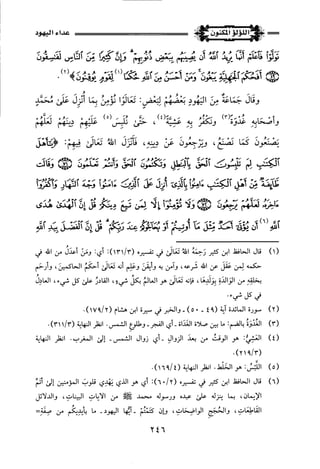 اللؤلؤ المكنون
عداء اليهود
تَوَلَّوْا فَاعْلَمْ أَنَّمَا يُرِيدُ اللَّهُ أَن يُصِيبَهُم بِبَعْضِ ذُنُوبِهِمْ وَإِنَّ كَثِيرًا مِّنَ النَّاسِ لَفَاسِقُونَ
أَفَحُكْمَ الْجَاهِلِيَّةِ يَبْغُونَ وَمَنْ أَحْسَنُ مِنَ اللَّهِ حُكْمًا(١) لِّقَوْمٍ يُوقِنُونَ﴾(٢).
وقالَ جَمَاعَةٌ مِنَ اليَهُودِ بَعْضُهُمْ لِبَعْضٍ: تَعَالَوْا نُؤْمِنُ بِمَا أُنْزِلَ عَلَى مُحَمَّدٍ
وأصْحَابِهِ غُدْوَةً(٣)، ونَكْفُرُ بِهِ عَشِيَّةً(٤) حَتَّى نُلَبِّسَ(٥) عَلَيْهِمْ دِينَهُمْ لَعَلَّهُمْ
يَصْنَعُونَ كَمَا نَصْنَعُ، ويَرْجِعُونَ عَنْ دِينِهِ، فَأَنْزَلَ اللهُ تَعَالَى فِيهِمْ: ﴿يَا أَهْلَ
الْكِتَابِ لِمَ تَلْبِسُونَ الْحَقَّ بِالْبَاطِلِ وَتَكْتُمُونَ الْحَقَّ وَأَنتُمْ تَعْلَمُونَ وَقَالَت
طَّائِفَةٌ مِّنْ أَهْلِ الْكِتَابِ آمِنُوا بِالَّذِي أُنزِلَ عَلَى الَّذِينَ آمَنُوا وَجْهَ النَّهَارِ وَاكْفُرُوا
آخِرَهُ لَعَلَّهُمْ يَرْجِعُونَ وَلَا تُؤْمِنُوا إِلَّا لِمَن تَبِعَ دِينَكُمْ قُلْ إِنَّ الْهُدَى هُدَى
اللَّهِ(٦) أَن يُؤْتَى أَحَدٌ مِّثْلَ مَا أُوتِيتُمْ أَوْ يُحَاجُّوكُمْ عِندَ رَبِّكُمْ قُلْ إِنَّ الْفَضْلَ بِيَدِ اللَّهِ
(١) قال الحافظ ابن كثير رَحِمَهُ اللهُ تَعَالَى في تفسيره (١٣١/٣): أي: ومَنْ أعدَلُ من الله في
حكمه لِمن عَقَلَ عن الله شَرعه، وآمن به وأيقَنَ وعَلِمَ أنه تَعَالَى أحكَمُ الحاكمين، وأرحم
بخلقِهِ من الوَالدَةِ بِوَلَدِهَا، فإنه تَعَالَى هو العالِمُ بكلِّ شيءٍ، القادرُ على كل شيءٍ، العادِلُ
في كل شيءٍ.
(٢) سورة المائدة آية (٤٩ - ٥٠) ـ والخبر في سيرة ابن هشام (١٧٩/٢).
(٣) الغُدْوَةُ بالضم: ما بين صلاة الغَدَاةِ ـ أي الفجر ـ وطلوع الشمس. انظر النهاية (٣١١/٣).
(٤) العَشِيُّ: هو الوقتُ من بعدَ الزوالِ ـ أي زوال الشمس ـ إلى المغرب. انظر النهاية
(٢١٩/٣).
(٥) اللَّبْسُ: هو الخَلْطُ. انظر النهاية (١٦٩/٤).
(٦) قال الحافظ ابن كثير في تفسيره (٦٠/٢): أي هو الذي يَهْدِي قلوبَ المؤمنين إلى أتَمِّ
الإيمان، بما ينزله على عبده ورسوله محمد ﷺ من الآيات البينات، والدلائل
القاطِعَاتِ، والحُجَجِ الواضِحَاتِ، وإن كتَمْتُمْ ـ أيُّها اليهود ـ ما بأيدِيكُم من صِفَةِ=
٢٤٦